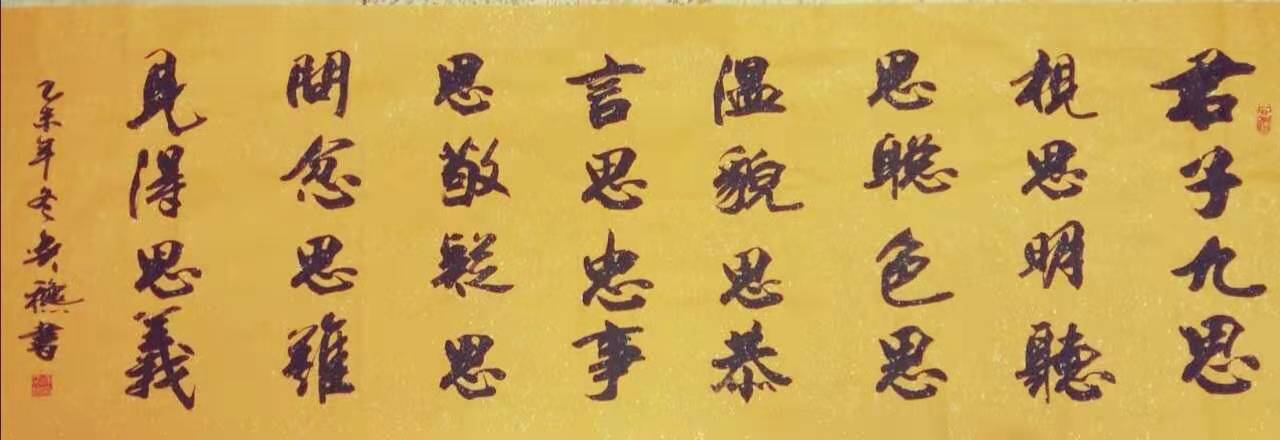 君子九思
視思明聽
思聰色思
温貌思恭
言思忠事
思敬疑思
問忿思難
見得思義
乙未年冬書